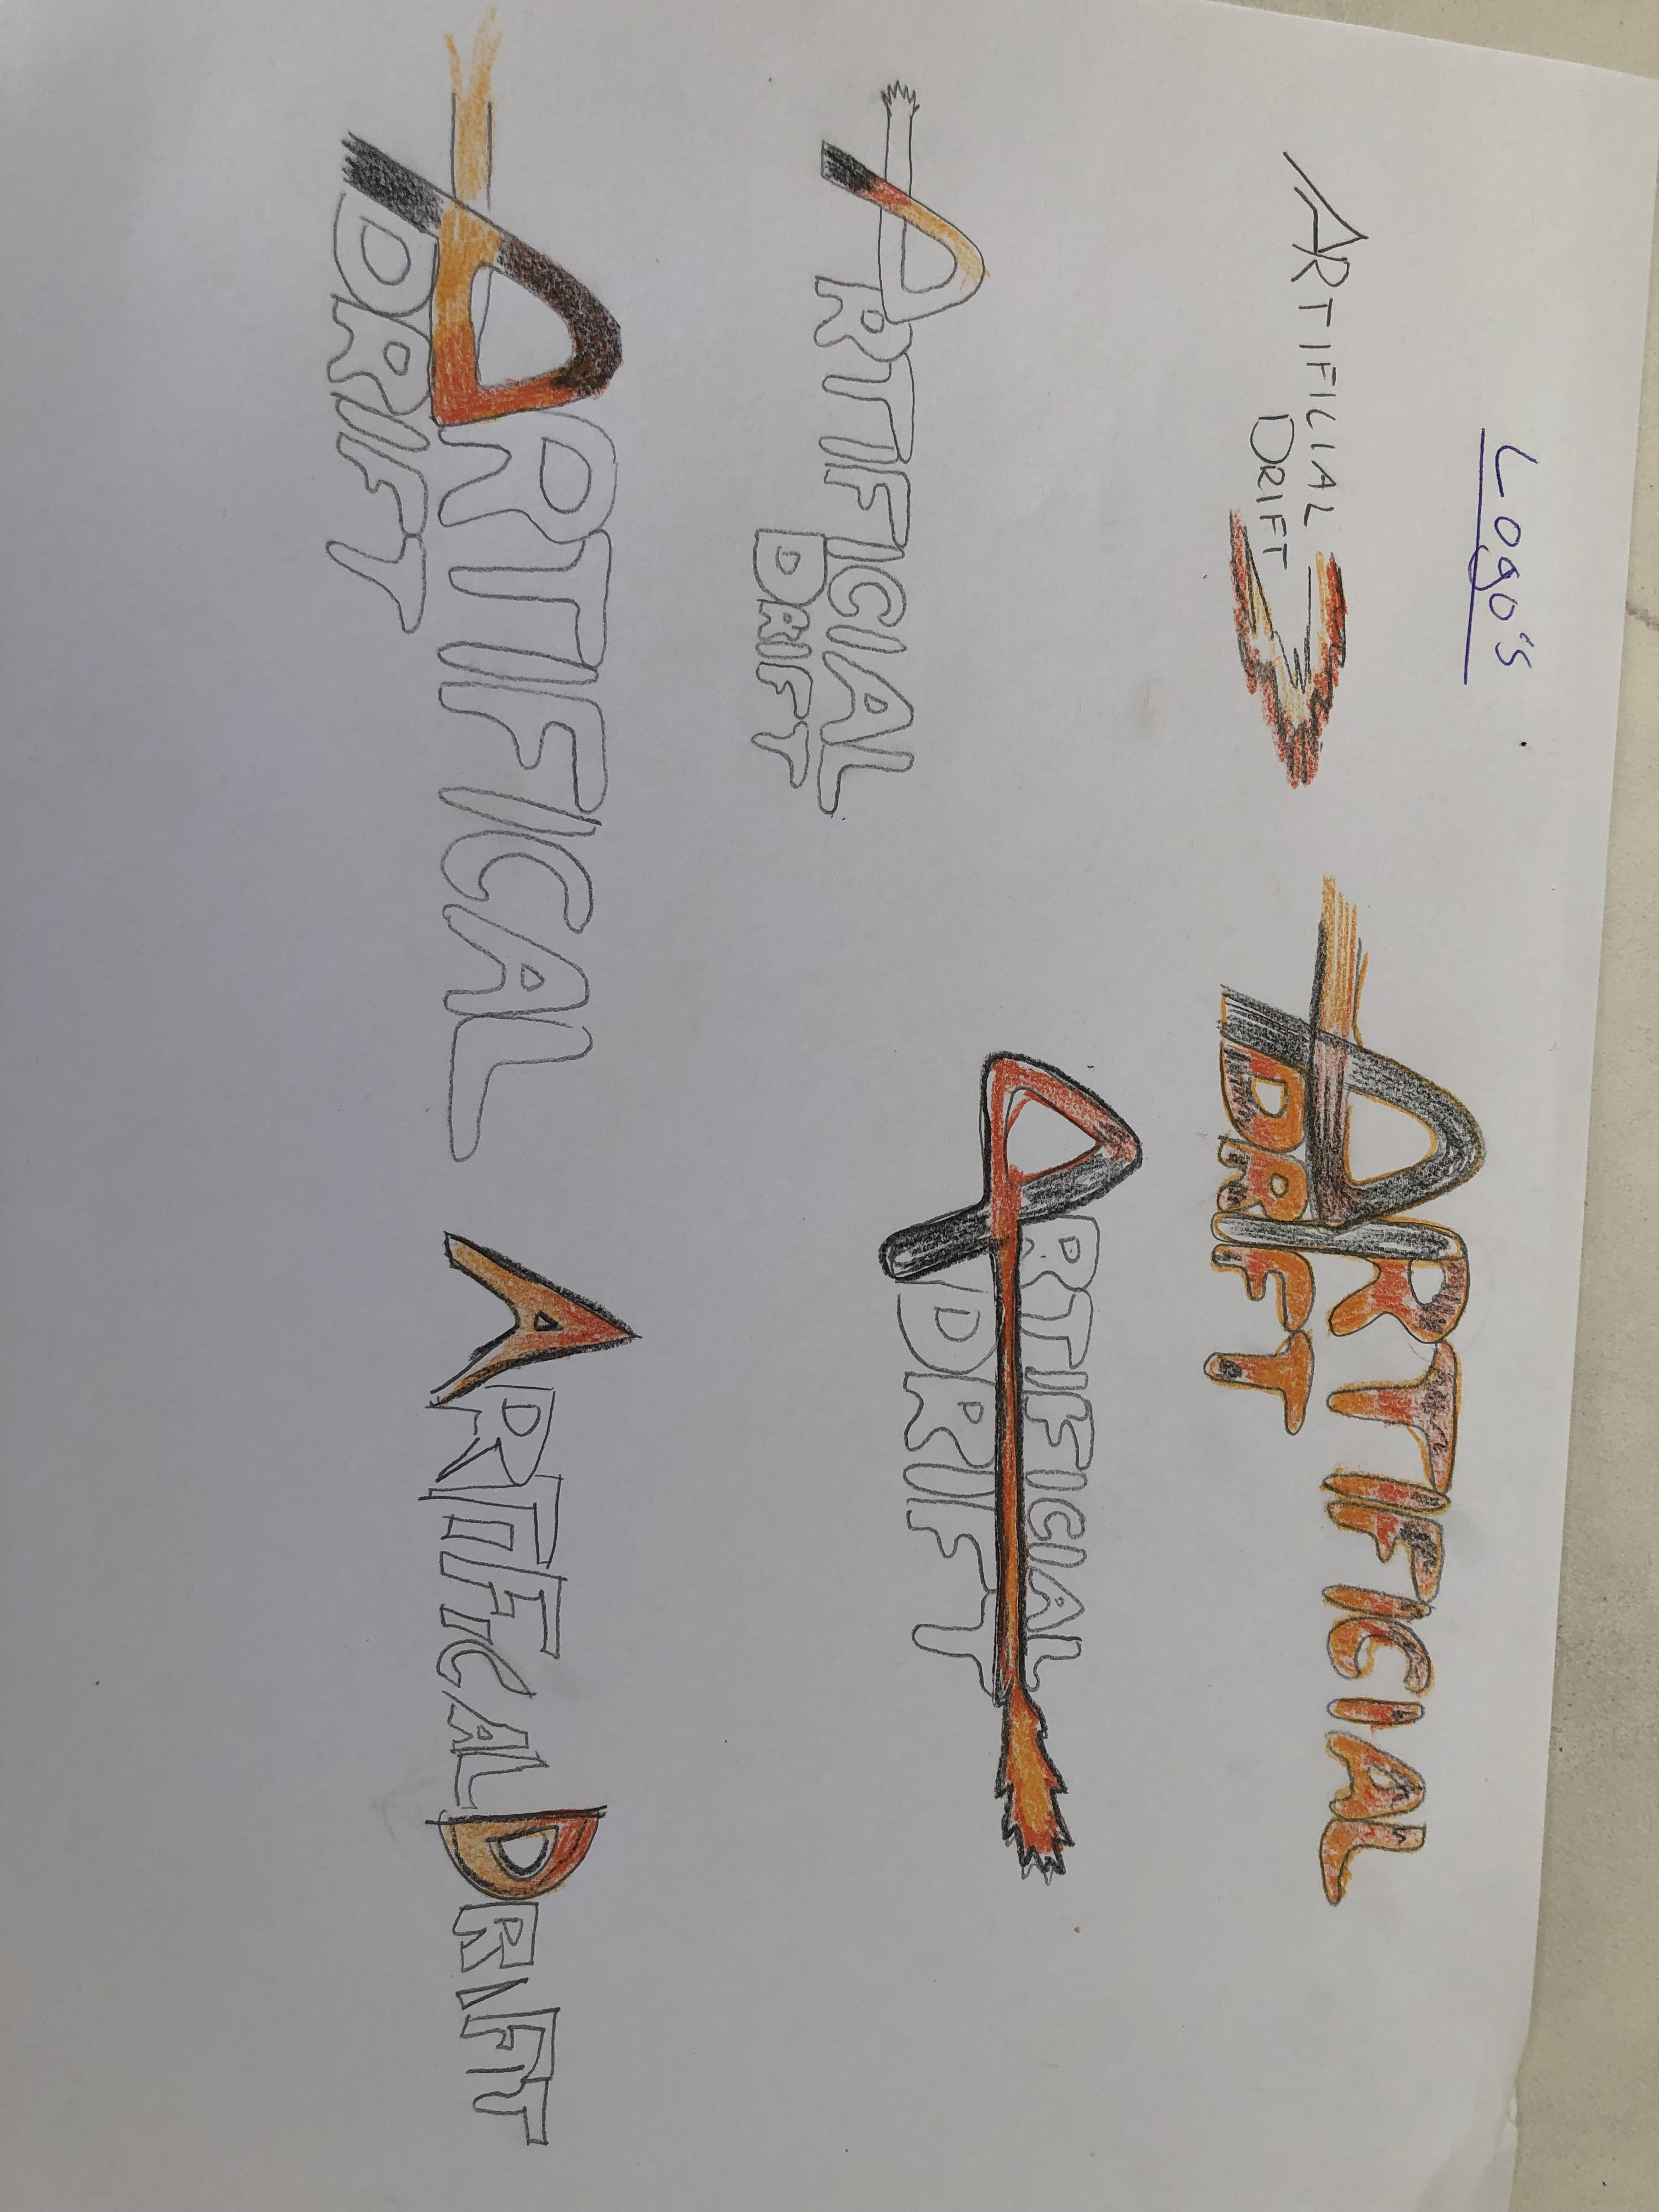 Logo's
ARTIFICIAL
DRIFT
ARTIFICIAL
DRIFT
ARTIFICIAL
DRIFT
ARTIFICIAL
DRIFT
ARTIFICAL
DRIFT
ARTIFICAL DRIFT